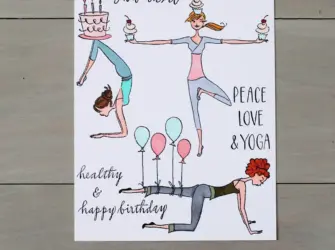 PEACE
LOVE
& YOGA
healthy
&
happy birthday